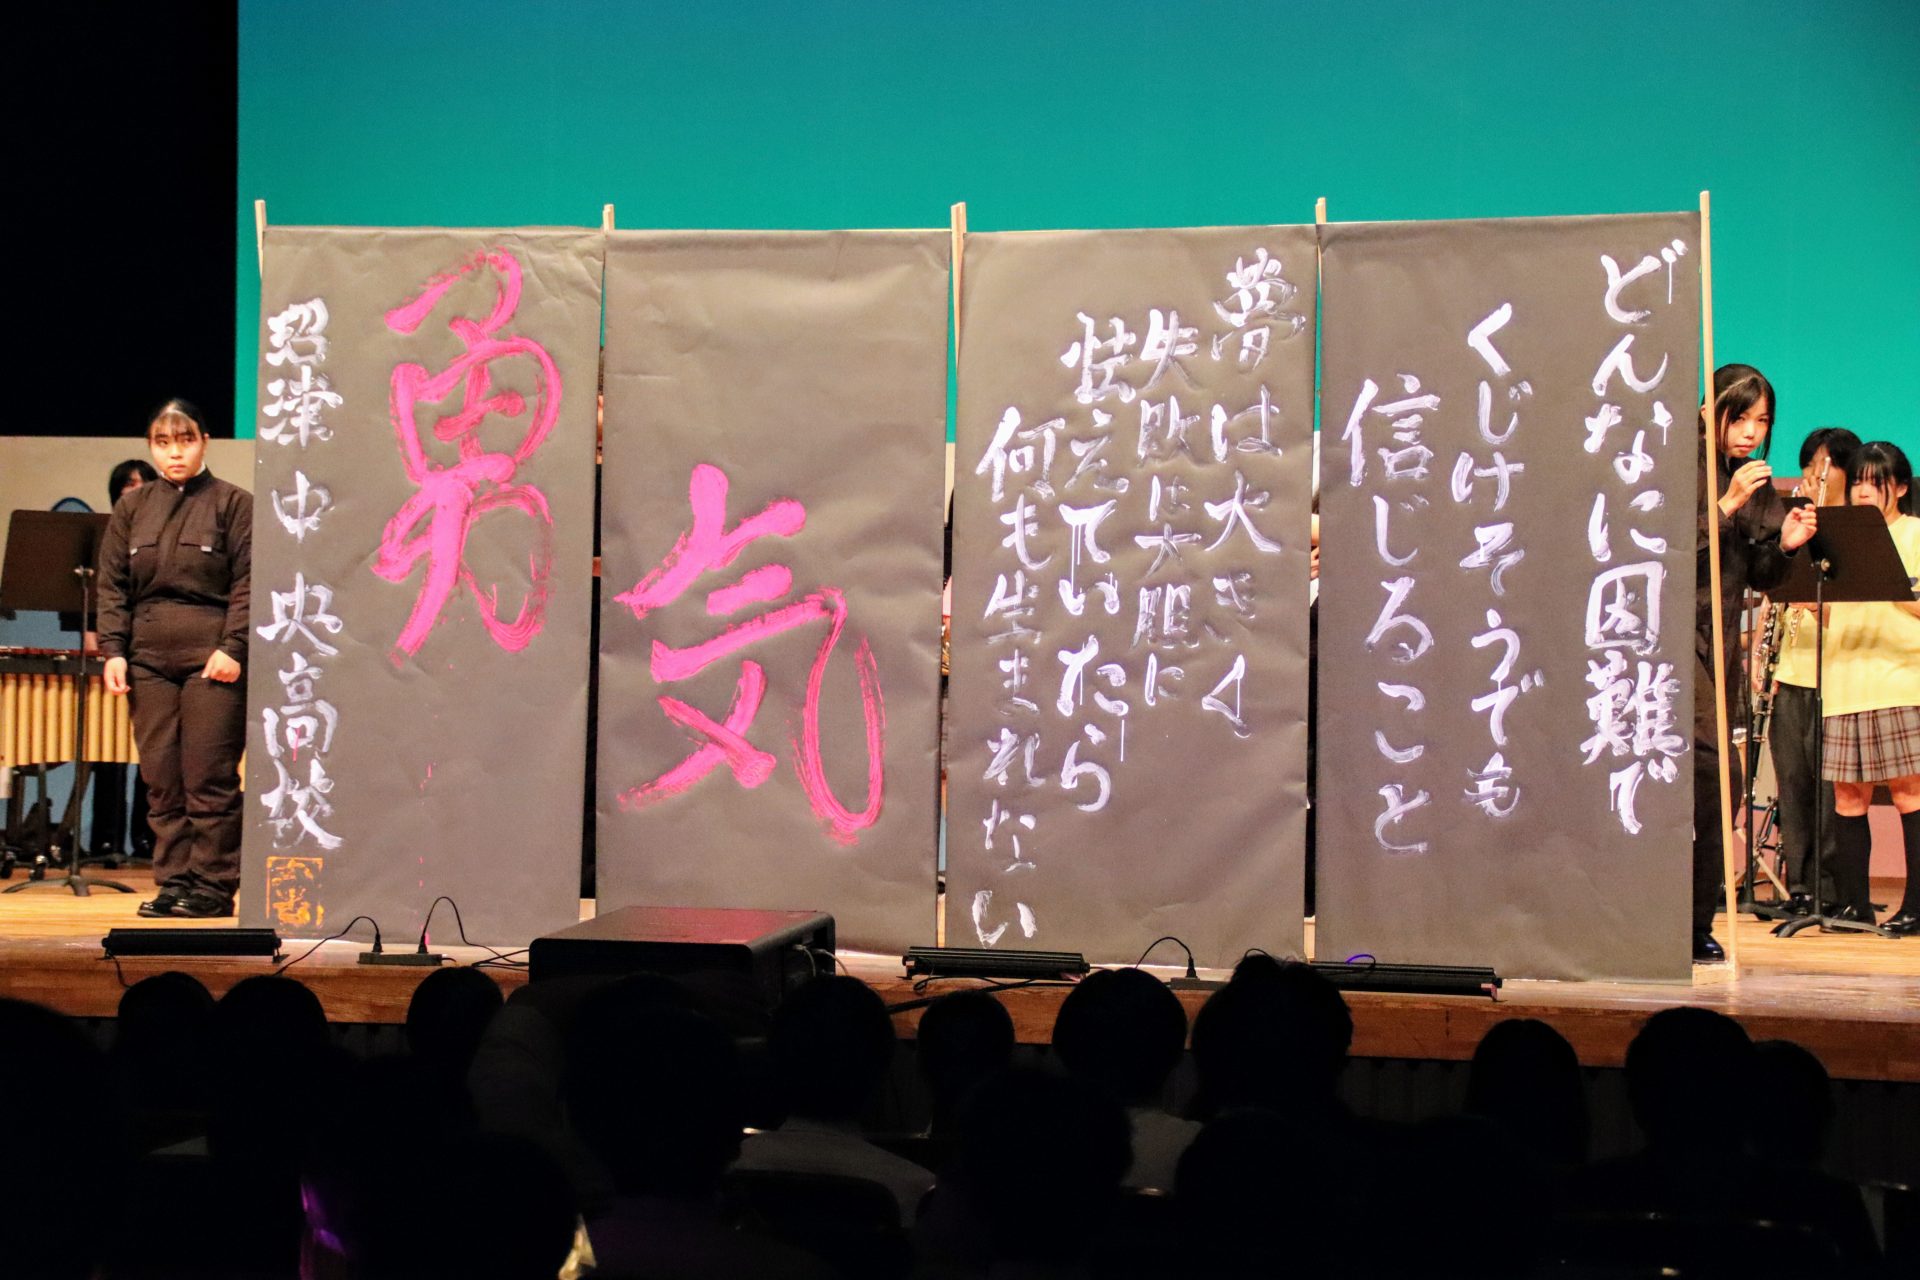 どんなに困難で
くじけそうでも
信じること
夢は大きく
失敗は大胆に
怯えていたら
何も生まれない
勇気
沼津中央高校